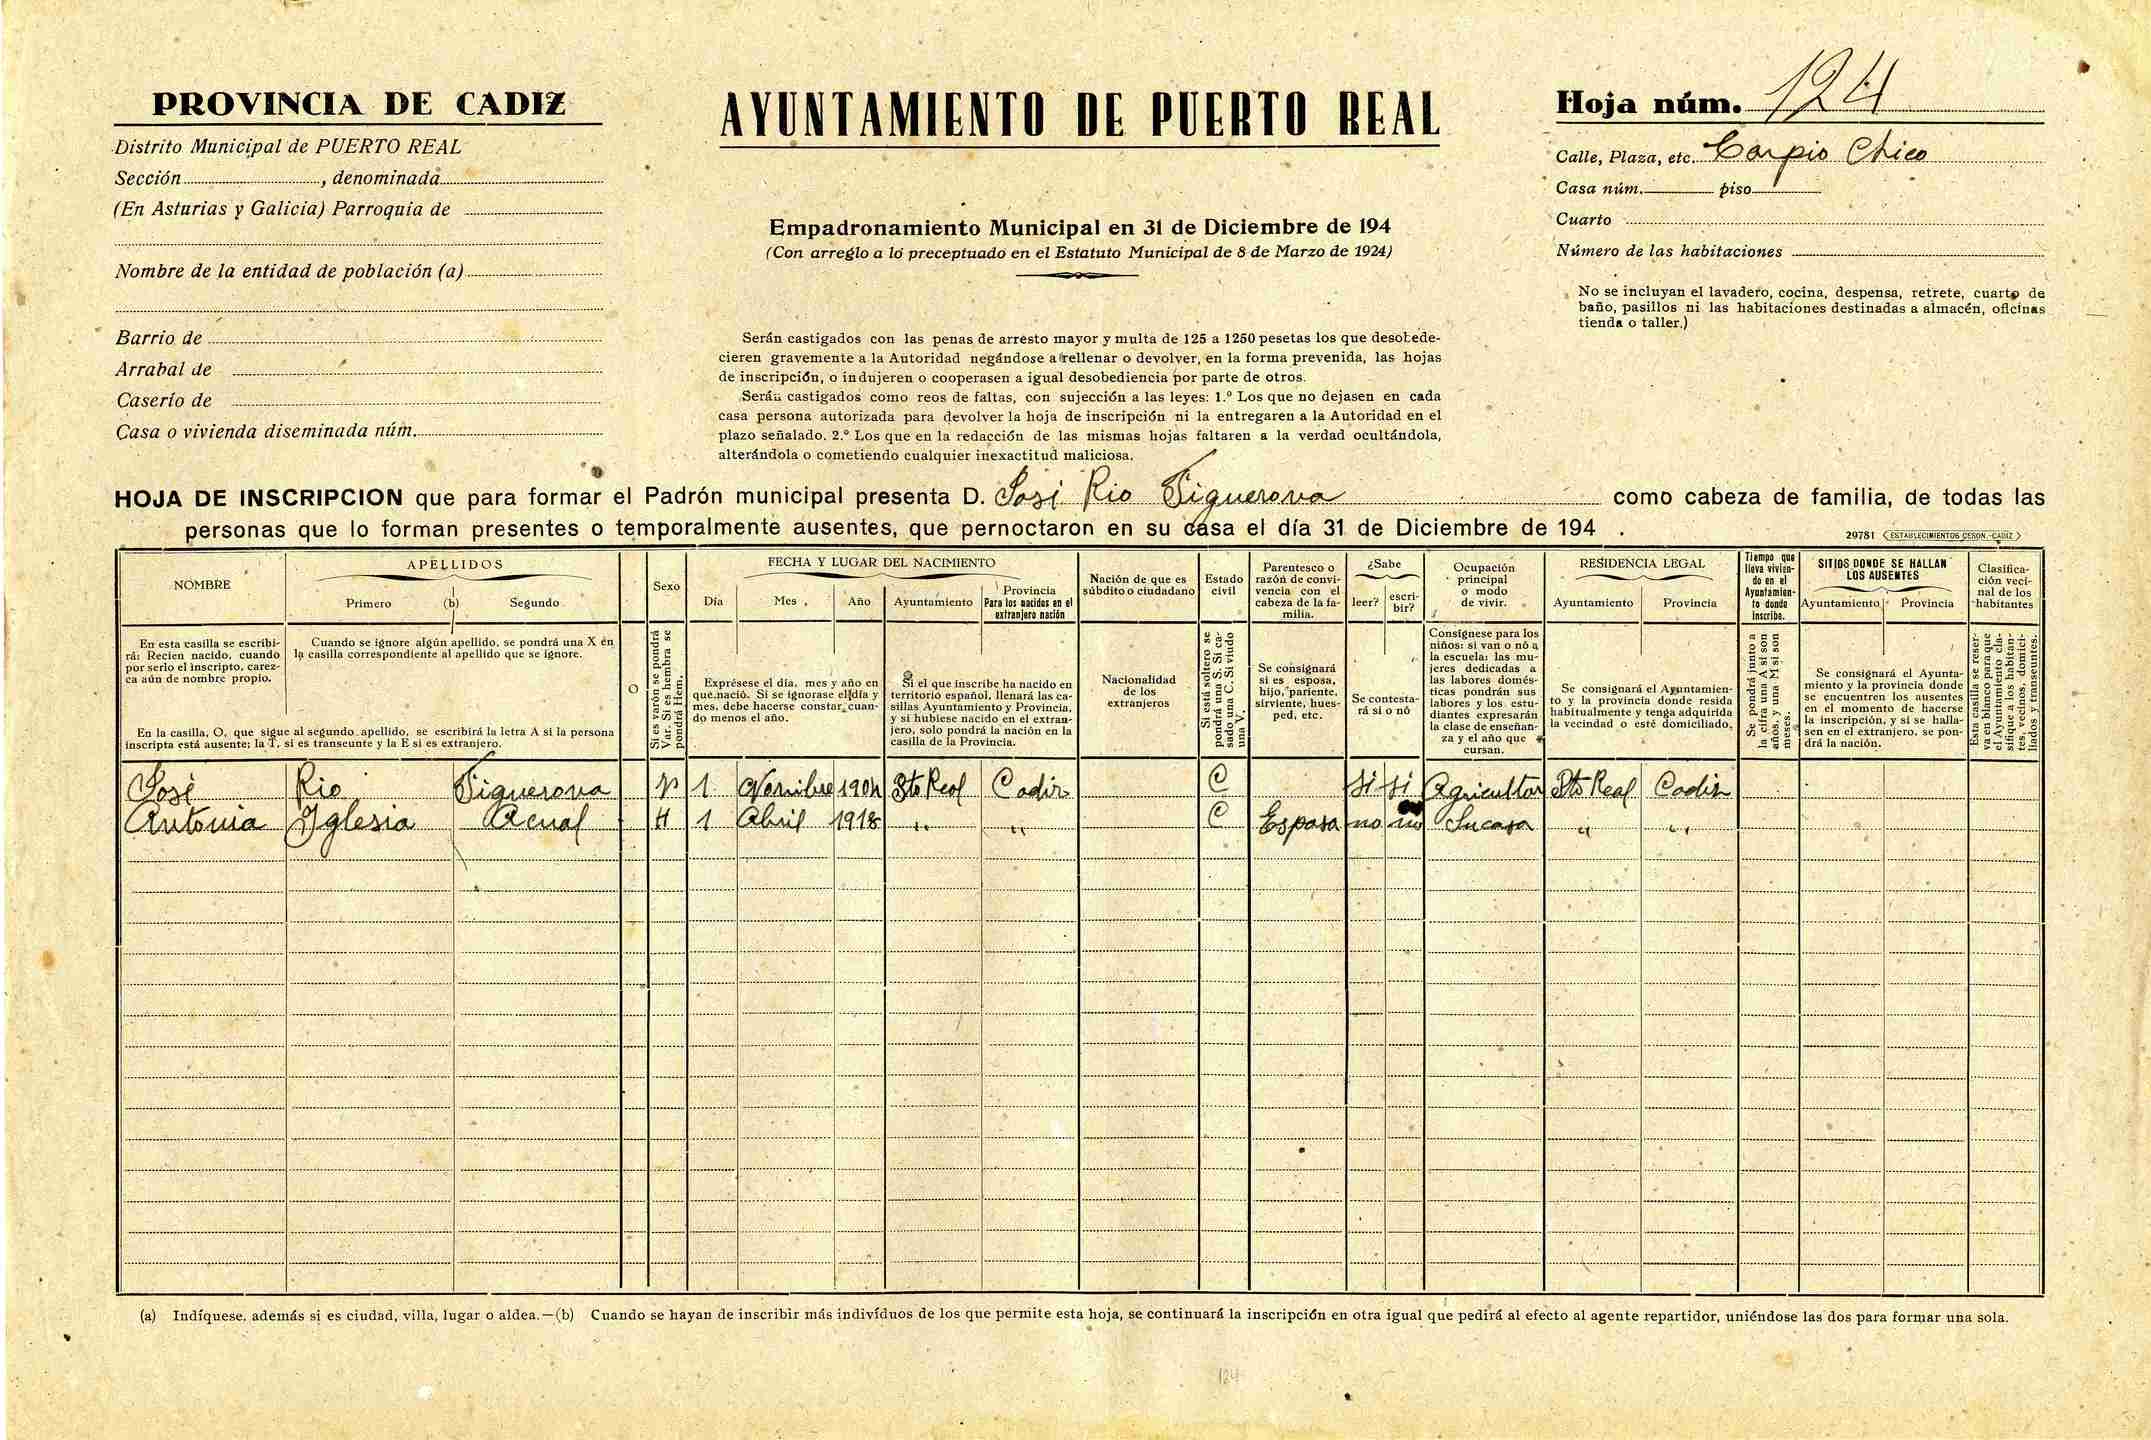 PROVINCIA DE CADIZ
Distrito Municipal de PUERTO REAL
Sección , denominada
(En Asturias y Galicia) Parroquia de
Nombre de la entidad de población (a)
Barrio de
Arrabal de
Caserío de
Casa o vivienda diseminada núm.
AYUNTAMIENTO DE PUERTO REAL
Empadronamiento Municipal en 31 de Diciembre de 194
(Con arreglo a lo preceptuado en el Estatuto Municipal de 8 de Marzo de 1924)
Serán castigados con las penas de arresto mayor y multa de 125 a 1250 pesetas los que desobede-
cieren gravemente a la Autoridad negándose a rellenar o devolver, en la forma prevenida, las hojas
de inscripción, o indujeren o cooperasen a igual desobediencia por parte de otros.
Serán castigados como reos de faltas, con sujección a las leyes: 1.º Los que no dejasen en cada
casa persona autorizada para devolver la hoja de inscripción ni la entregaren a la Autoridad en el
plazo señalado. 2.º Los que en la redacción de las mismas hojas faltaren a la verdad ocultándola,
alterándola o cometiendo cualquier inexactitud maliciosa.
Hoja núm. 124
Calle, Plaza, etc. Carpio Chico
Casa núm. piso
Cuarto
Número de las habitaciones
No se incluyan el lavadero, cocina, despensa, retrete, cuarto de
baño, pasillos ni las habitaciones destinadas a almacén, oficinas
tienda o taller.)
HOJA DE INSCRIPCION que para formar el Padrón municipal presenta D. José Rio Figuerova como cabeza de familia, de todas las
personas que lo forman presentes o temporalmente ausentes, que pernoctaron en su casa el día 31 de Diciembre de 194 .
29781 ESTABLECIMIENTOS CERON.-CADIZ
NOMBRE
En esta casilla se escribi-
rá: Recien nacido, cuando
por serlo el inscripto, carez-
ca aún de nombre propio.
APELLIDOS
Primero (b) Segundo
Cuando se ignore algún apellido, se pondrá una X en
la casilla correspondiente al apellido que se ignore.
En la casilla, O, que sigue al segundo apellido, se escribirá la letra A si la persona
inscripta está ausente; la T, si es transeunte y la E si es extranjero.
O
Sexo
Si es varón se pondrá
Var. Si es hembra se
pondrá Hem.
FECHA Y LUGAR DEL NACIMIENTO
Día Mes Año Ayuntamiento
Provincia
Para los nacidos en el
extranjero nación
Exprésese el día, mes y año en
que nació. Si se ignorase el día y
mes, debe hacerse constar cuan-
do menos el año.
Si el que inscribe ha nacido en
territorio español, llenará las ca-
sillas Ayuntamiento y Provincia,
y si hubiese nacido en el extran-
jero, solo pondrá la nación en la
casilla de la Provincia.
Nación de que es
súbdito o ciudadano
Nacionalidad
de los
extranjeros
Estado
civil
Si está soltero se
pondrá una S. Si ca-
sado una C. Si viudo
una V.
Parentesco o
razón de convi-
vencia con el
cabeza de la fa-
milia.
Se consignará
si es esposa,
hijo, pariente,
sirviente, hues-
ped, etc.
¿Sabe
leer? escri-
bir?
Se contesta-
rá si o nó
Ocupación
principal
o modo
de vivir.
Consígnese para los
niños: si van o nó a
la escuela: las mu-
jeres dedicadas a
las labores domés-
ticas pondrán sus
labores y los estu-
diantes expresarán
la clase de enseñan-
za y el año que
cursan.
RESIDENCIA LEGAL
Ayuntamiento Provincia
Se consignará el Ayuntamien-
to y la provincia donde resida
habitualmente y tenga adquirida
la vecindad o esté domiciliado.
Tiempo que
lleva vivien-
do en el
Ayuntamien-
to donde
inscribe.
Se pondrá junto a
la cifra una A si son
años, y una M si son
meses.
SITIOS DONDE SE HALLAN
LOS AUSENTES
Ayuntamiento Provincia
Se consignará el Ayunta-
miento y la provincia donde
se encuentren los ausentes
en el momento de hacerse
la inscripción, y si se halla-
sen en el extranjero, se pon-
drá la nación.
Clasifica-
ción veci-
nal de los
habitantes
Esta casilla se reser-
va en blanco para que
el Ayuntamiento cla-
sifique a los habitan-
tes, vecinos, domici-
liados y transeuntes.
José Rio Figuerova V 1 Novimbre 1904 Pto Real Cadiz C si si Agricultor Pto Real Cadiz
Antonia Yglesia H 1 Abril 1918 " " C Esposa no no Sucasa " "
(a) Indíquese. además si es ciudad, villa, lugar o aldea.—(b) Cuando se hayan de inscribir más indivíduos de los que permite esta hoja, se continuará la inscripción en otra igual que pedirá al efecto al agente repartidor, uniéndose las dos para formar una sola.
124